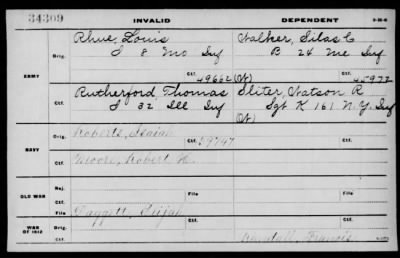 34309 INVALID DEPENDENT
ARMY
Orig. Rhue, Louis Walker, Silas C
I 8 Mo Inf B 24 Me Inf
Ctf. 49662 (Ot) Ctf. 45977
Rutherford, Thomas Sliter, Watson R
Ctf. I 32 Ill Inf Sgt K 161 N.Y. Inf
(Ot)
NAVY
Orig. Roberts, Isaiah Ctf. 29747 Ctf.
Ctf. Moore, Robert H.
OLD WAR
Rej. File File
File Daggett, Elijah
WAR OF 1812
Orig. Ctf. Ctf.
Ctf. Randall, Francis